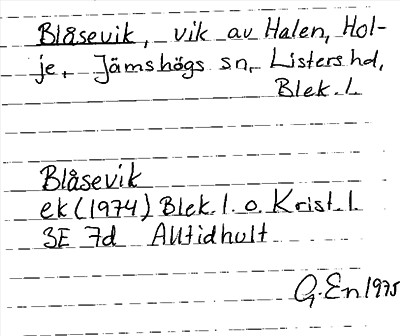 Blåsevik, vik av Halen, Hol-
je, Jämshögs sn, Listers hd,
Blek. l
Blåsevik
ek (1974) Blek. l. o. Krist. l
3E 7d Alltidhult
G. En 1975